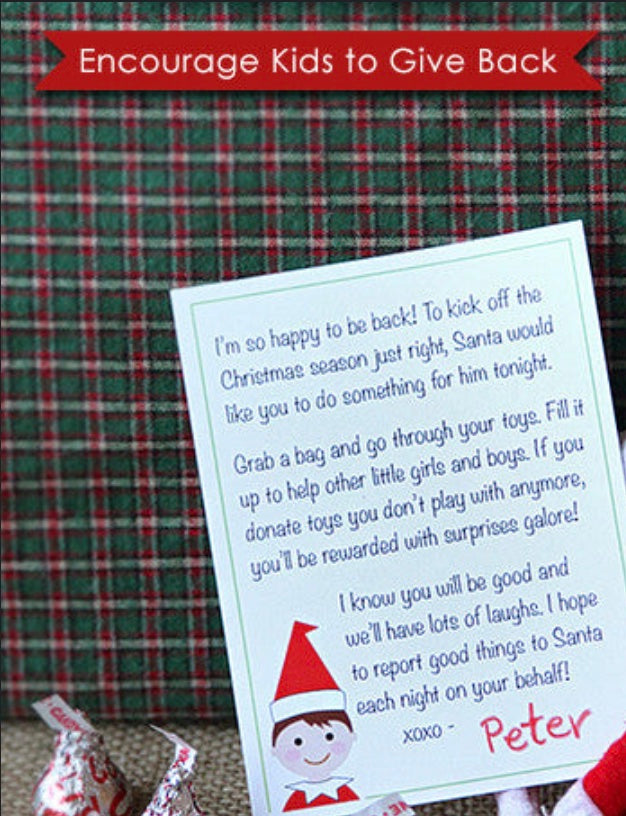 Encourage Kids to Give Back
I'm so happy to be back! To kick off the
Christmas season just right, Santa would
like you to do something for him tonight.
Grab a bag and go through your toys. Fill it
up to help other little girls and boys. If you
donate toys you don't play with anymore,
you'll be rewarded with surprises galore!
I know you will be good and
we'll have lots of laughs. I hope
to report good things to Santa
each night on your behalf!
xoxo - Peter